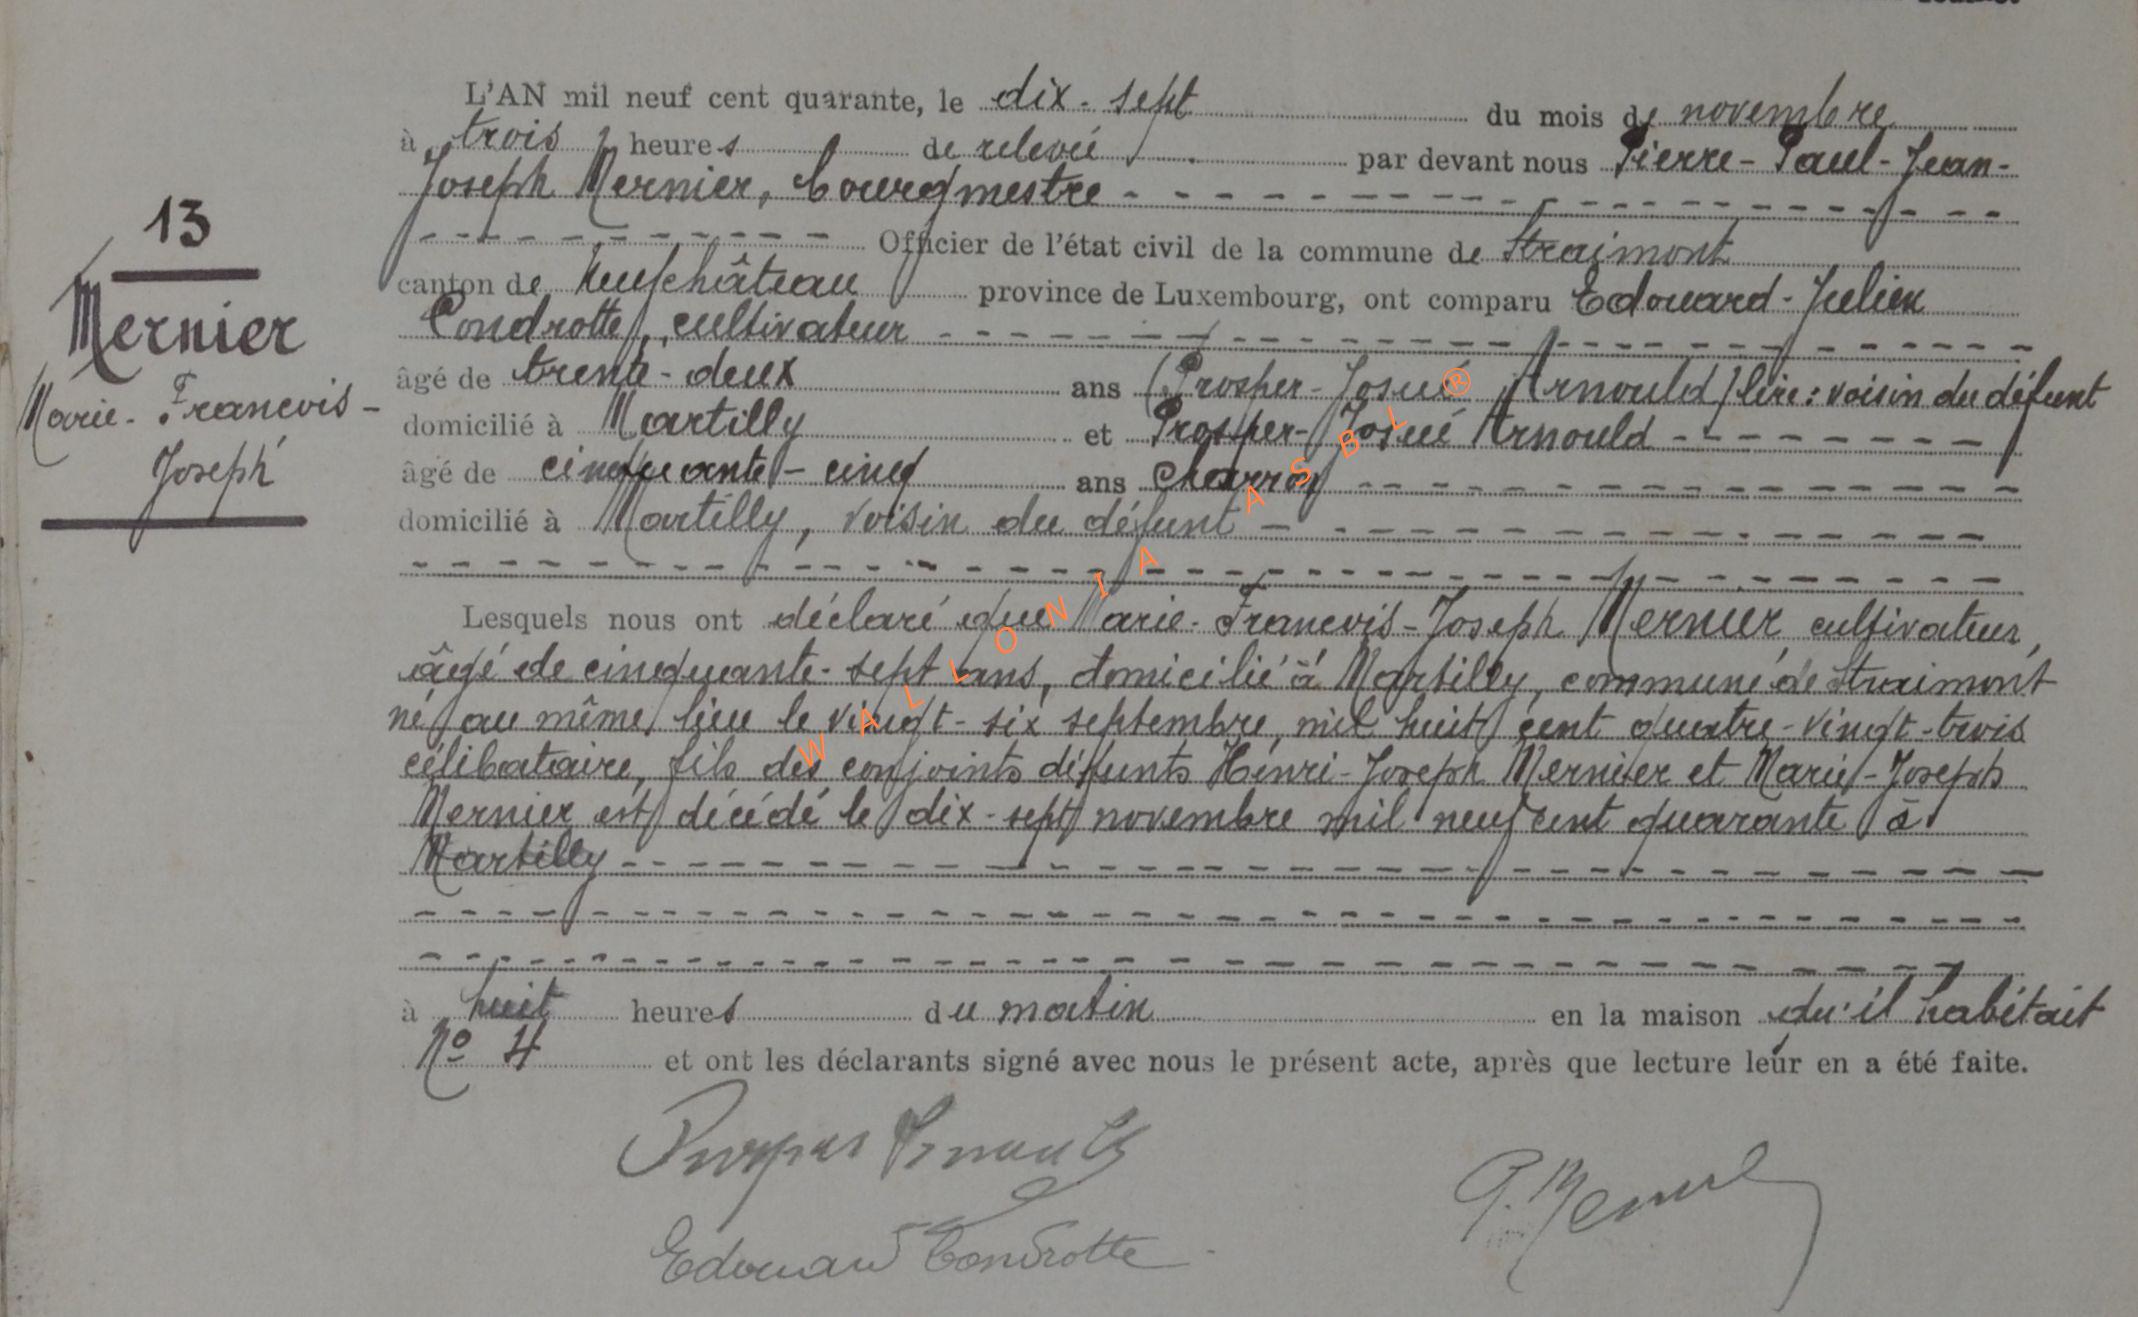 L'AN mil neuf cent quarante, le dix-sept du mois de novembre
à trois heures de relevée par devant nous Pierre-Paul-Jean-
Joseph Mernier, bourgmestre
Officier de l'état civil de la commune de Straimont
canton de Neufchâteau province de Luxembourg, ont comparu Edouard-Julien
Condrotte, cultivateur
âgé de trente-deux ans (Prosper-Josué Arnould) lire: voisin du défunt
domicilié à Martilly et Prosper-Josué Arnould
âgé de cinquante-cinq ans charron
domicilié à Martilly, voisin du défunt
13
Mernier
Marie-Francois-
Joseph
Lesquels nous ont déclaré que Marie-Francois-Joseph Mernier, cultivateur,
âgé de cinquante-sept ans, domicilié à Martilly, commune de Straimont
né au même lieu le vingt-six septembre, mil huit cent quatre-vingt-trois
célibataire, fils des conjoints défunts Henri-Joseph Mernier et Marie-Joseph
Mernier est décédé le dix-sept novembre mil neuf cent quarante à
Martilly
à huit heures du matin en la maison qu'il habitait
No 4 et ont les déclarants signé avec nous le présent acte, après que lecture leur en a été faite.
Prosper Arnould
Edouard Condrotte
P. Mernier
WALLONIA ASBL ®